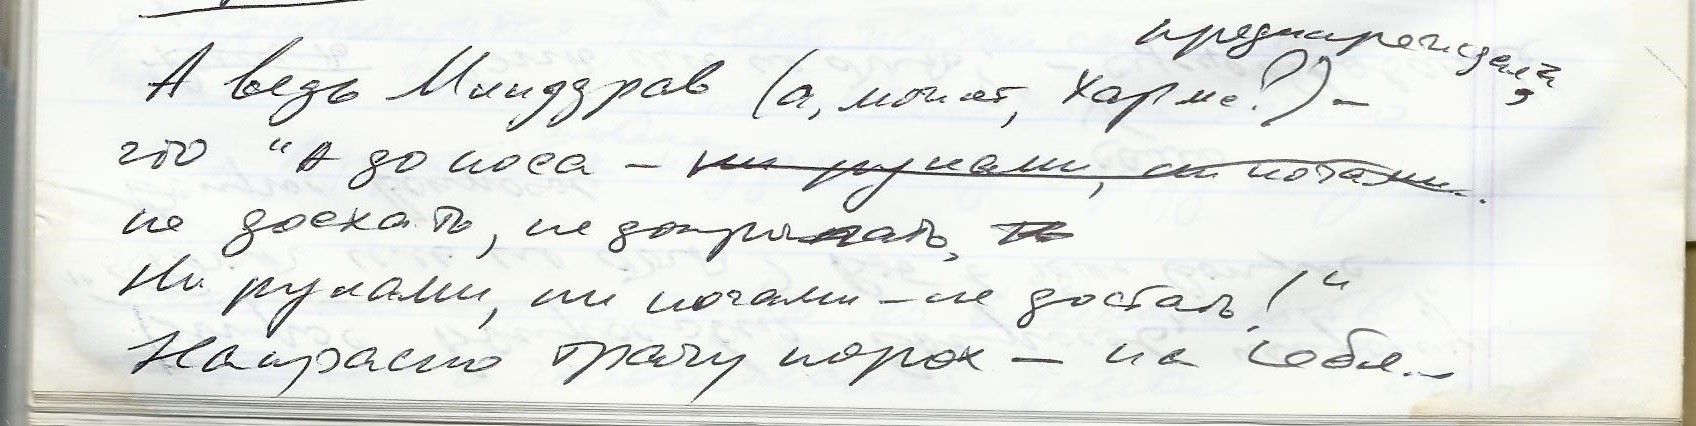 предупреждал,
А ведь Минздрав (а, может, Хармс?) –
что "А до носа – ни руками, ни ногами.
не доехать, не допрыгать,
Ни руками, ни ногами – не достать!"
Напрасно трачу порох – на себя...